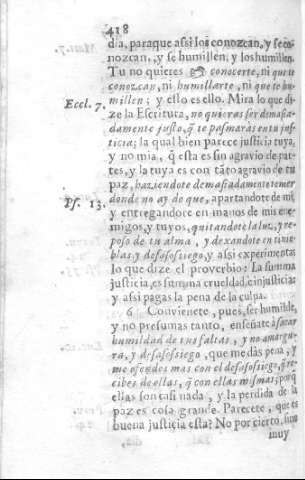 418
dia, paraque assi los conozcan, y se co-
nozcan, y se humillen, y los humillen.
Tu no quieres ☞ conocerte, ni que te
conozcan, ni humillarte, ni que te hu-
millen; y esso es ello. Mira lo que di-
Eccl. 7.
ze la Escritura, no quieras ser demasia-
damente justo, q̃ te pasmaràs en tu jus-
ticia; la qual bien parece justicia tuya,
y no mia, q̃ esta es sin agravio de par-
tes, y la tuya es con tãto agravio de tu
paz, haziendote demasiadamente temer
Ps. 13.
donde no ay de que, apartandote de mi,
y entregandote en manos de mis ene-
migos, y tuyos, quitandote la luz, y re-
poso de tu alma, y dexandote en tinie-
blas y desasosiego, y assi experimentas
lo que dize el proverbio: La summa
justicia, es summa crueldad, è injusticia:
y assi pagas la pena de la culpa.
6 Convienete, pues, ser humilde,
y no presumas tanto, enseñate à sacar
humildad de tus faltas, y no amargu-
ra, y desasosiego, que me dàs pena, y
me ofendes mas con el desasosiego, q̃ re-
cibes de ellas, q̃ con ellas mismas; porq̃
ellas son casi nada, y la perdida de la
paz es cosa grande. Parecete, que es
buena justicia esta? No por cierto, sino
muy